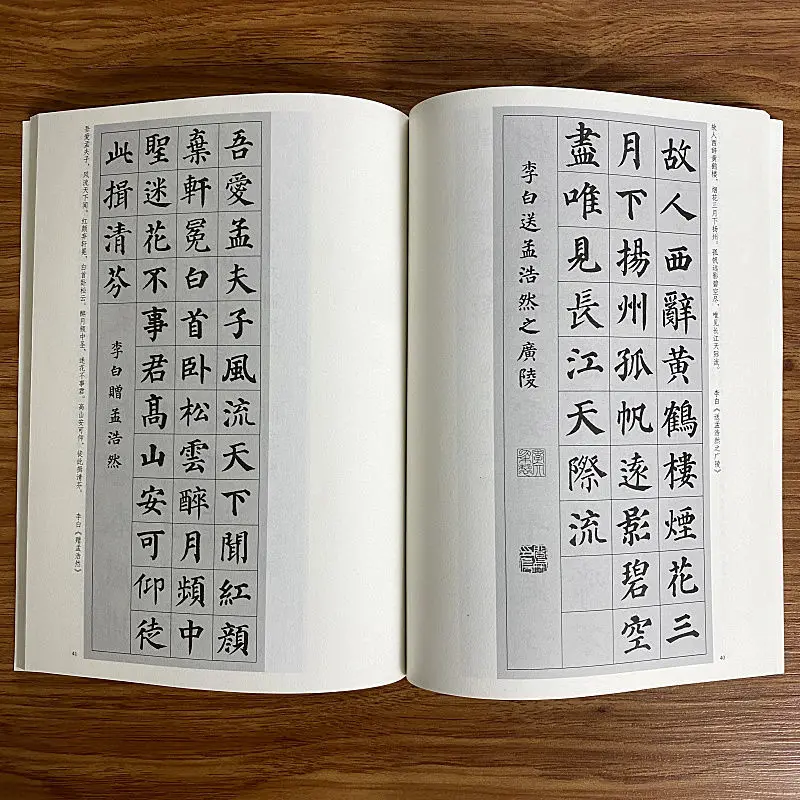 故人西辞黄鹤楼，烟花三月下扬州。孤帆远影碧空尽，唯见长江天际流。 李白《送孟浩然之广陵》
故人西辭黄鶴樓煙花三
月下揚州孤帆遠影碧空
盡唯見長江天際流
李白送孟浩然之廣陵
40
吾愛孟夫子風流天下聞紅顔
棄軒冕白首卧松雲醉月頻中
聖迷花不事君髙山安可仰徒
此揖清芬
李白贈孟浩然
吾爱孟夫子，风流天下闻。红颜弃轩冕，白首卧松云。醉月频中圣，迷花不事君。高山安可仰，徒此揖清芬。 李白《赠孟浩然》
41